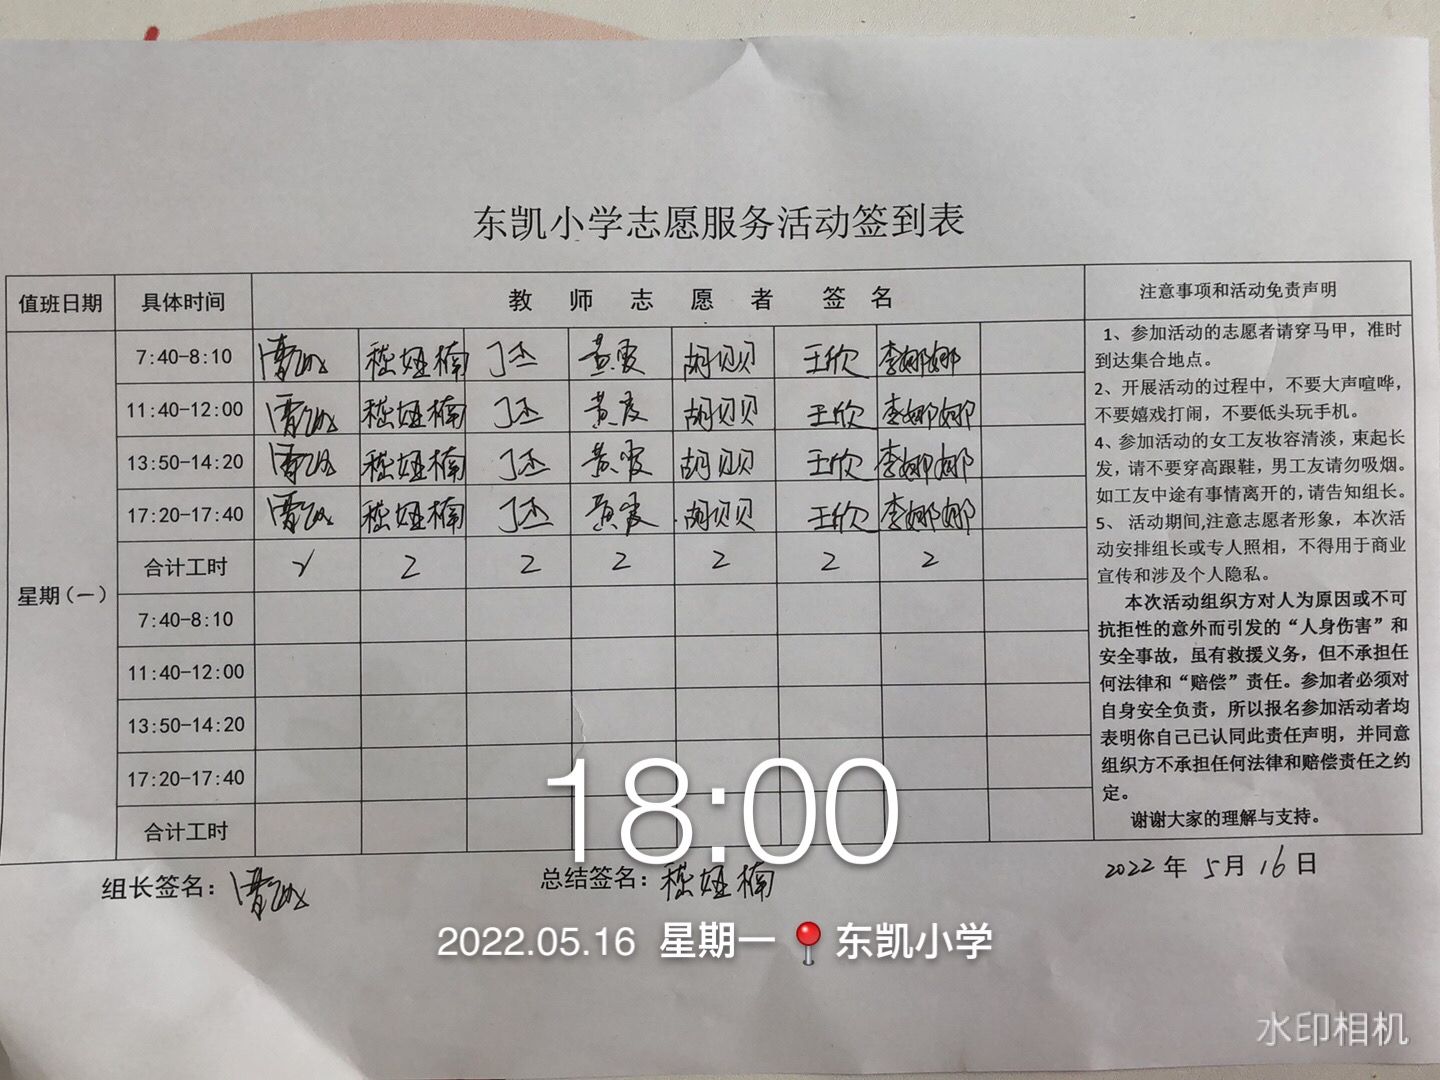 东凯小学志愿服务活动签到表
值班日期 具体时间 教师志愿者签名 注意事项和活动免责声明
星期(一)
7:40-8:10 嵇娅楠 丁丕 黄雯 胡贝贝 王欣 李娜娜
11:40-12:00 嵇娅楠 丁丕 黄雯 胡贝贝 王欣 李娜娜
13:50-14:20 嵇娅楠 丁丕 黄雯 胡贝贝 王欣 李娜娜
17:20-17:40 嵇娅楠 丁丕 黄雯 胡贝贝 王欣 李娜娜
合计工时 2 2 2 2 2 2 2
7:40-8:10
11:40-12:00
13:50-14:20
17:20-17:40
合计工时
1、参加活动的志愿者请穿马甲，准时
到达集合地点。
2、开展活动的过程中，不要大声喧哗，
不要嬉戏打闹，不要低头玩手机。
4、参加活动的女工友妆容清淡，束起长
发，请不要穿高跟鞋，男工友请勿吸烟。
如工友中途有事情离开的,请告知组长。
5、 活动期间,注意志愿者形象，本次活
动安排组长或专人照相，不得用于商业
宣传和涉及个人隐私。
本次活动组织方对人为原因或不可
抗拒性的意外而引发的“人身伤害”和
安全事故，虽有救援义务，但不承担任
何法律和“赔偿”责任。参加者必须对
自身安全负责，所以报名参加活动者均
表明你自己已认同此责任声明，并同意
组织方不承担任何法律和赔偿责任之约
定。
谢谢大家的理解与支持。
组长签名： 总结签名：嵇娅楠 2022年5月16日
18:00
2022.05.16 星期一 东凯小学
水印相机